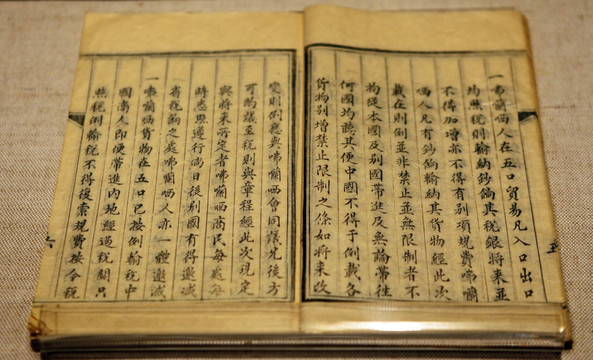 一咈囒哂人在五口貿易凡入口出口
均照稅則輸納鈔餉其稅銀將來並
不得加增亦不得有別項規費咈囒
哂人凡有鈔餉輸納其貨物經此次
載在則例並非禁止並無限制者不
拘從本國及別國帶進及無論帶往
何國均聽其便中國不得于例載各
貨物別增禁止限制之條如將來改
變則例應與咈囒哂會同議允後方
可酌議至稅則與章程經此次現定
與將來所定者咈囒哂商民每處每
時悉照遵行倘日後別國有得邀減
省稅餉之處咈囒哂人亦一體邀減
一咈囒哂貨物在五口已按例輸稅中
國商人即便帶進內地經過稅關只
照稅例輸稅不得復索規費按今稅
六